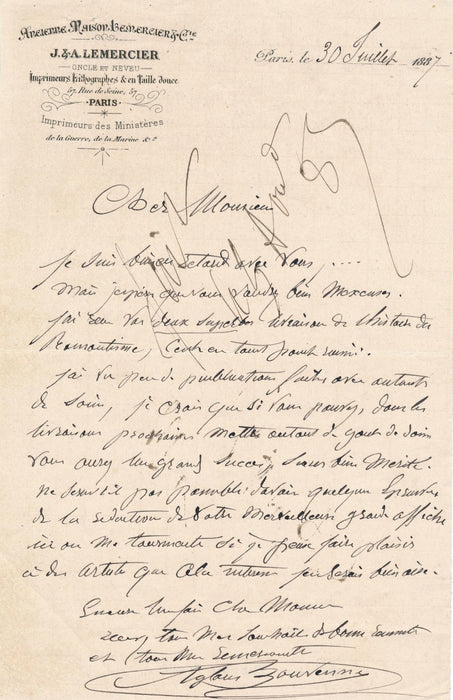 Ancienne Maison Lemercier & Cie
J. & A. LEMERCIER
ONCLE ET NEVEU
Imprimeurs Lithographes & en Taille Douce
57, Rue de Seine, 57
PARIS
Imprimeurs des Ministères
de la Guerre, de la Marine &a
Paris, le 30 Juillet 1887
Cher Monsieur
Je suis bien en retard avec vous, ....
Mais j'espère que vous voudrez bien M'excuser.
J'ai reçu vos deux superbes livraison de l'histoire du
Romantisme, C'est en tout point réussi.
J'ai vu peu de publications faites avec autant
de soin, je crois que si vous pouvez, dans les
livraisons prochaines mettre autant de gout de soin
vous aurez un grand Succès, bien Mérité.
Ne serait il pas possible d'avoir quelques Epreuves
de la réduction de votre Merveilleuse grande affiche
ici on me tourmente si je peux faire plaisir
à des artistes que cela interesse je serais bien aise.
Encore une fois Cher Monsieur
recevez tous Mes souhaits de bonne
et tous Mes remerciements
Aglaüs Bouvenne